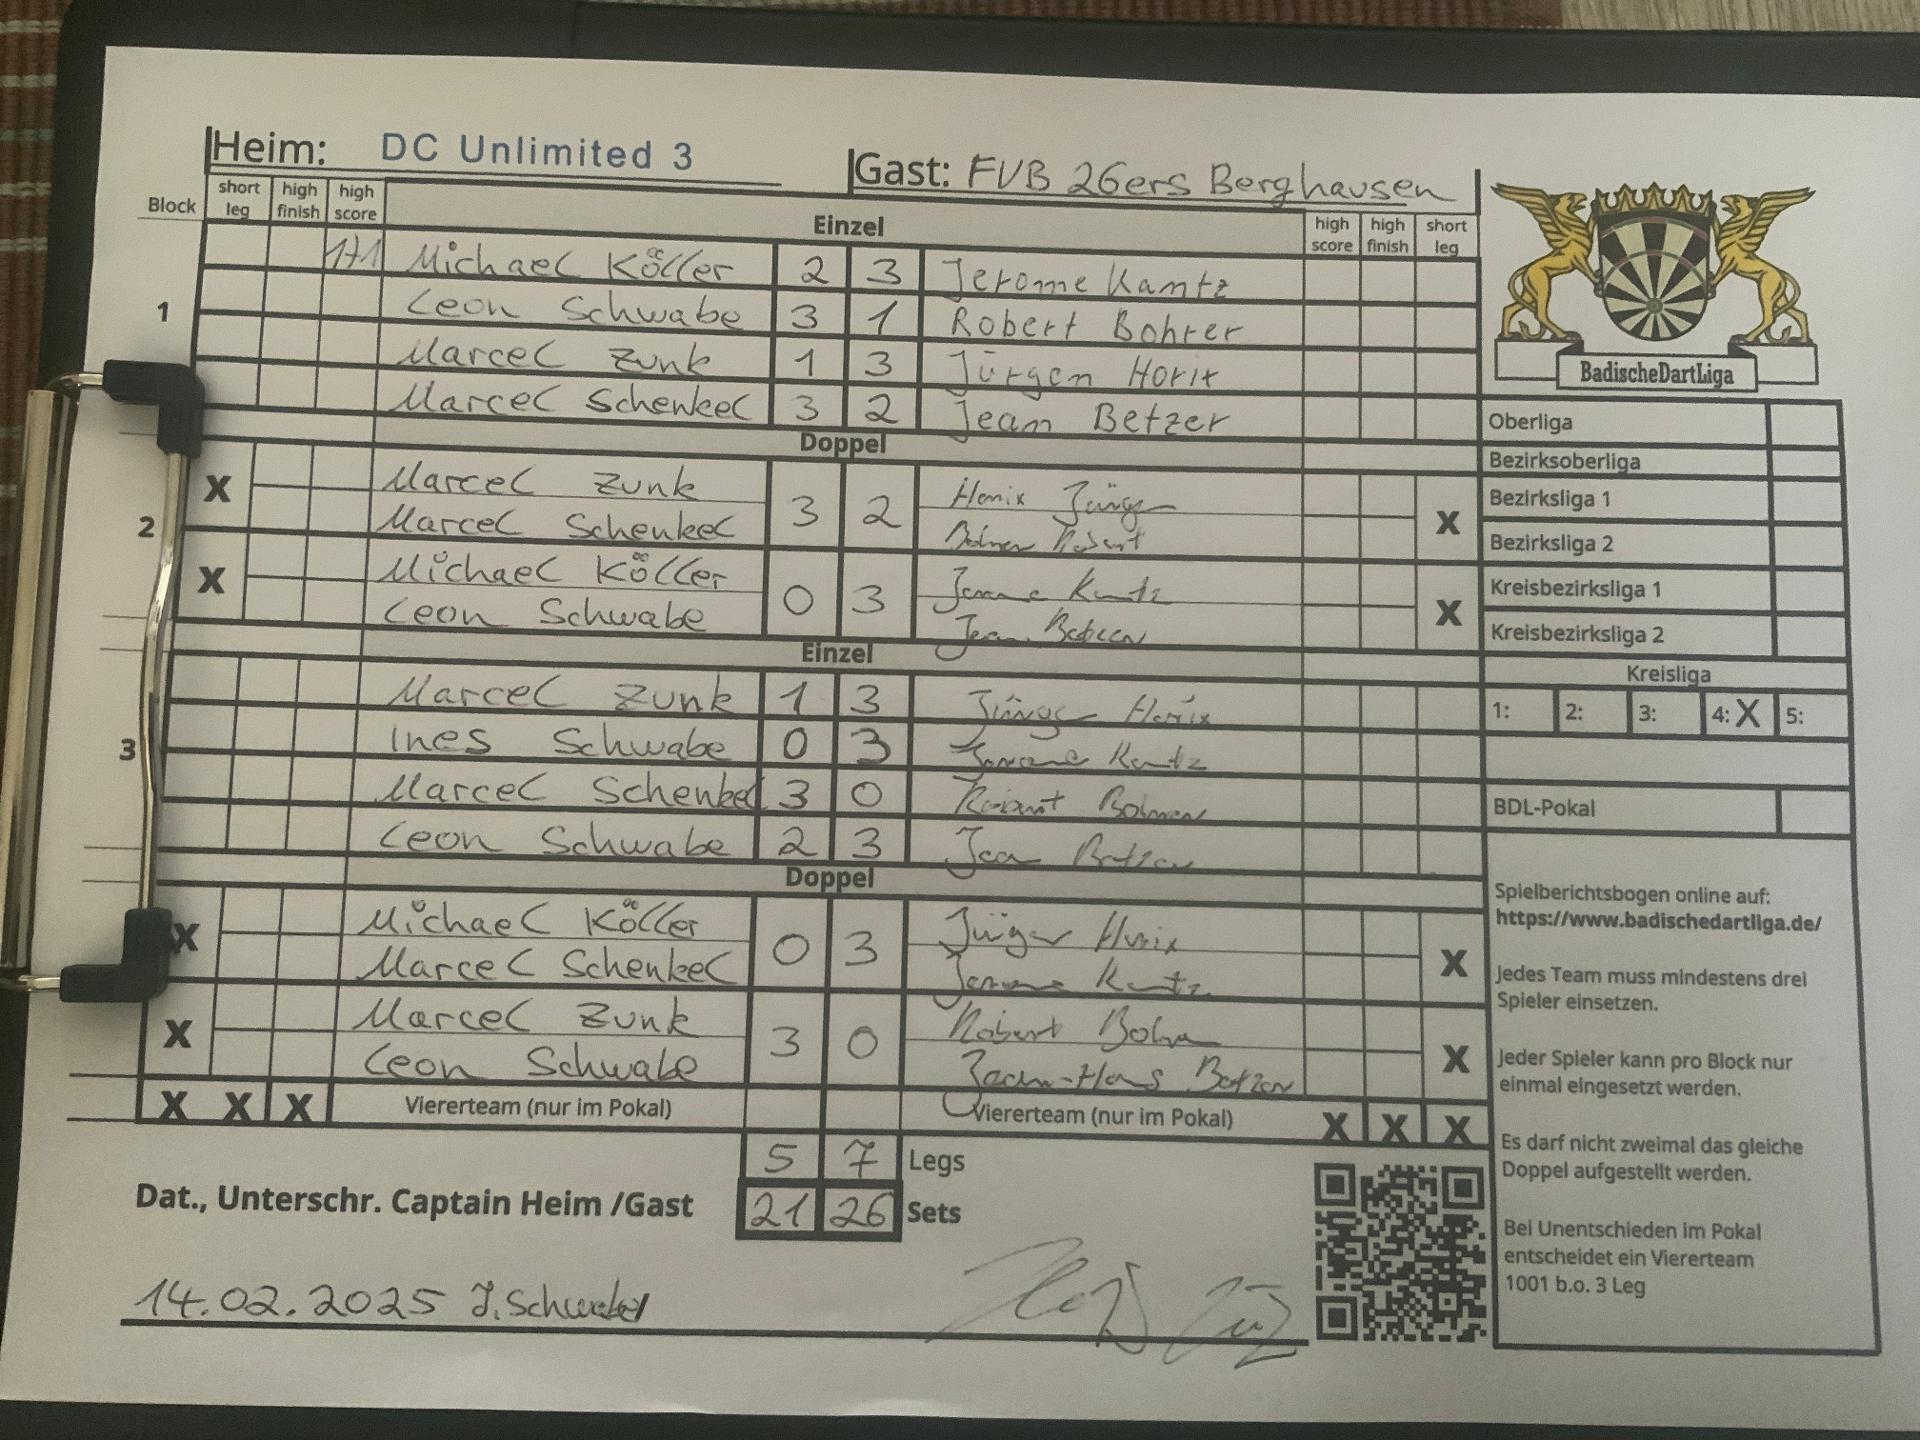 Heim: DC Unlimited 3 Gast: FVB 26ers Berghausen
Block short leg high finish high score Einzel high score high finish short leg
1
171 Michael Köller 2 3 Jerome Kantz
Leon Schwabe 3 1 Robert Bohrer
Marcel Zunk 1 3 Jürgen Horix
Marcel Schenkel 3 2 Jean Betzer
Doppel
2
X Marcel Zunk 3 2 Horix Jürgen X
Marcel Schenkel Robert
X Michael Köller 0 3 Kuntz X
Leon Schwabe Jean
Einzel
3
Marcel Zunk 1 3 Horix
Ines Schwabe 0 3 Kuntz
Marcel Schenkel 3 0 Robert
Leon Schwabe 2 3 Jean
Doppel
X Michael Köller 0 3 Horix X
Marcel Schenkel Kuntz
X Marcel Zunk 3 0 Robert X
Leon Schwabe
X X X Viererteam (nur im Pokal) Viererteam (nur im Pokal) X X X
5 7 Legs
Dat., Unterschr. Captain Heim /Gast 21 26 Sets
14.02.2025 J. Schwabe
BadischeDartLiga
Oberliga
Bezirksoberliga
Bezirksliga 1
Bezirksliga 2
Kreisbezirksliga 1
Kreisbezirksliga 2
Kreisliga
1: 2: 3: 4: X 5:
BDL-Pokal
Spielberichtsbogen online auf:
https://www.badischedartliga.de/
Jedes Team muss mindestens drei
Spieler einsetzen.
Jeder Spieler kann pro Block nur
einmal eingesetzt werden.
Es darf nicht zweimal das gleiche
Doppel aufgestellt werden.
Bei Unentschieden im Pokal
entscheidet ein Viererteam
1001 b.o. 3 Leg